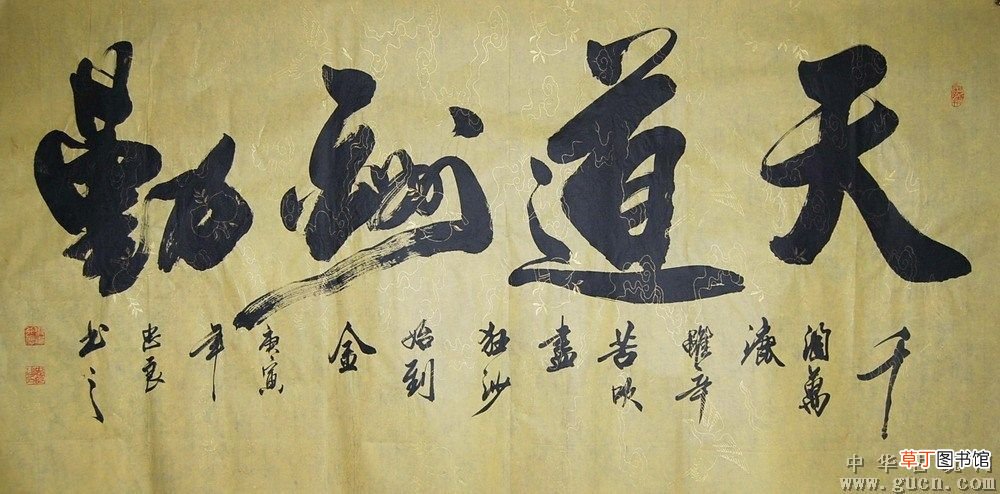 天道酬勤
千
淘萬
漉
雖辛
苦吹
盡
狂沙
始到
金
庚寅
年
忠良
书之
草丁图书馆
www.gucn.com